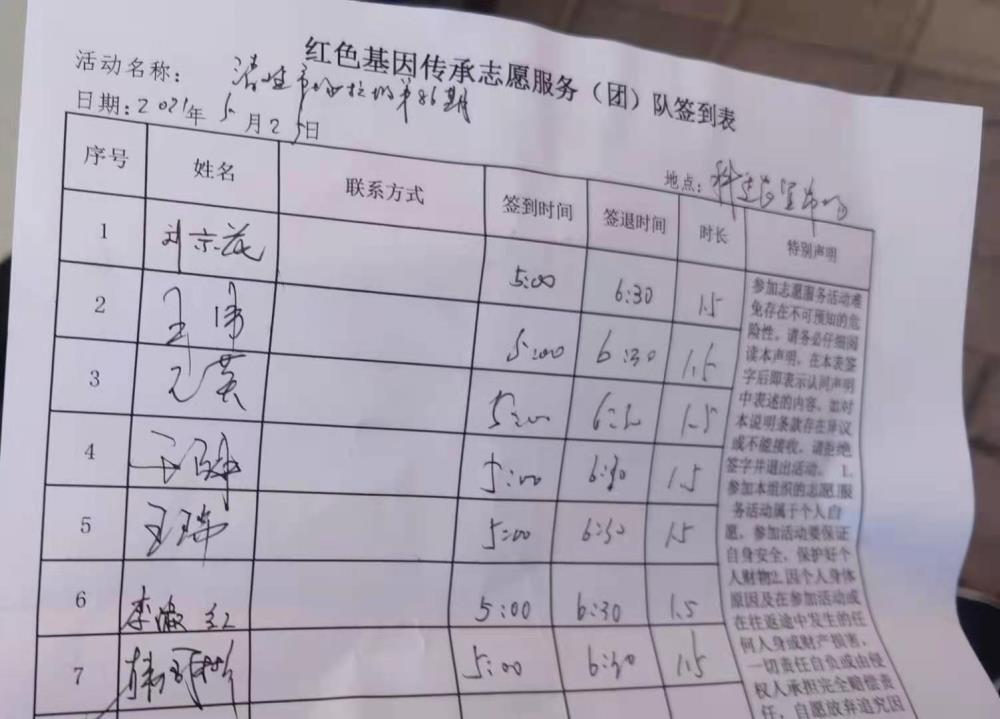 红色基因传承志愿服务（团）队签到表
活动名称： 第86期
日期：2021年5月25日
地点：
序号 姓名 联系方式 签到时间 签退时间 时长 特别声明
1 刘京 5:00 6:30 1.5
2 王 5:00 6:30 1.5
3 英 5:00 6:30 1.5
4 王 5:00 6:30 1.5
5 王瑞 5:00 6:30 1.5
6 李淑红 5:00 6:30 1.5
7 5:00 6:30 1.5
参加志愿服务活动难
免存在不可预知的危
险性，请务必仔细阅
读本声明，在本表签
字后即表示认同声明
中表述的内容，如对
本说明条款存在异议
或不能接收，请拒绝
签字并退出活动。 1.
参加本组织的志愿服
务活动属于个人自
愿，参加活动要保证
自身安全，保护好个
人财物2.因个人身体
原因及在参加活动或
在往返途中发生的任
何人身或财产损害，
一切责任自负或由侵
权人承担完全赔偿责
任，自愿放弃追究因